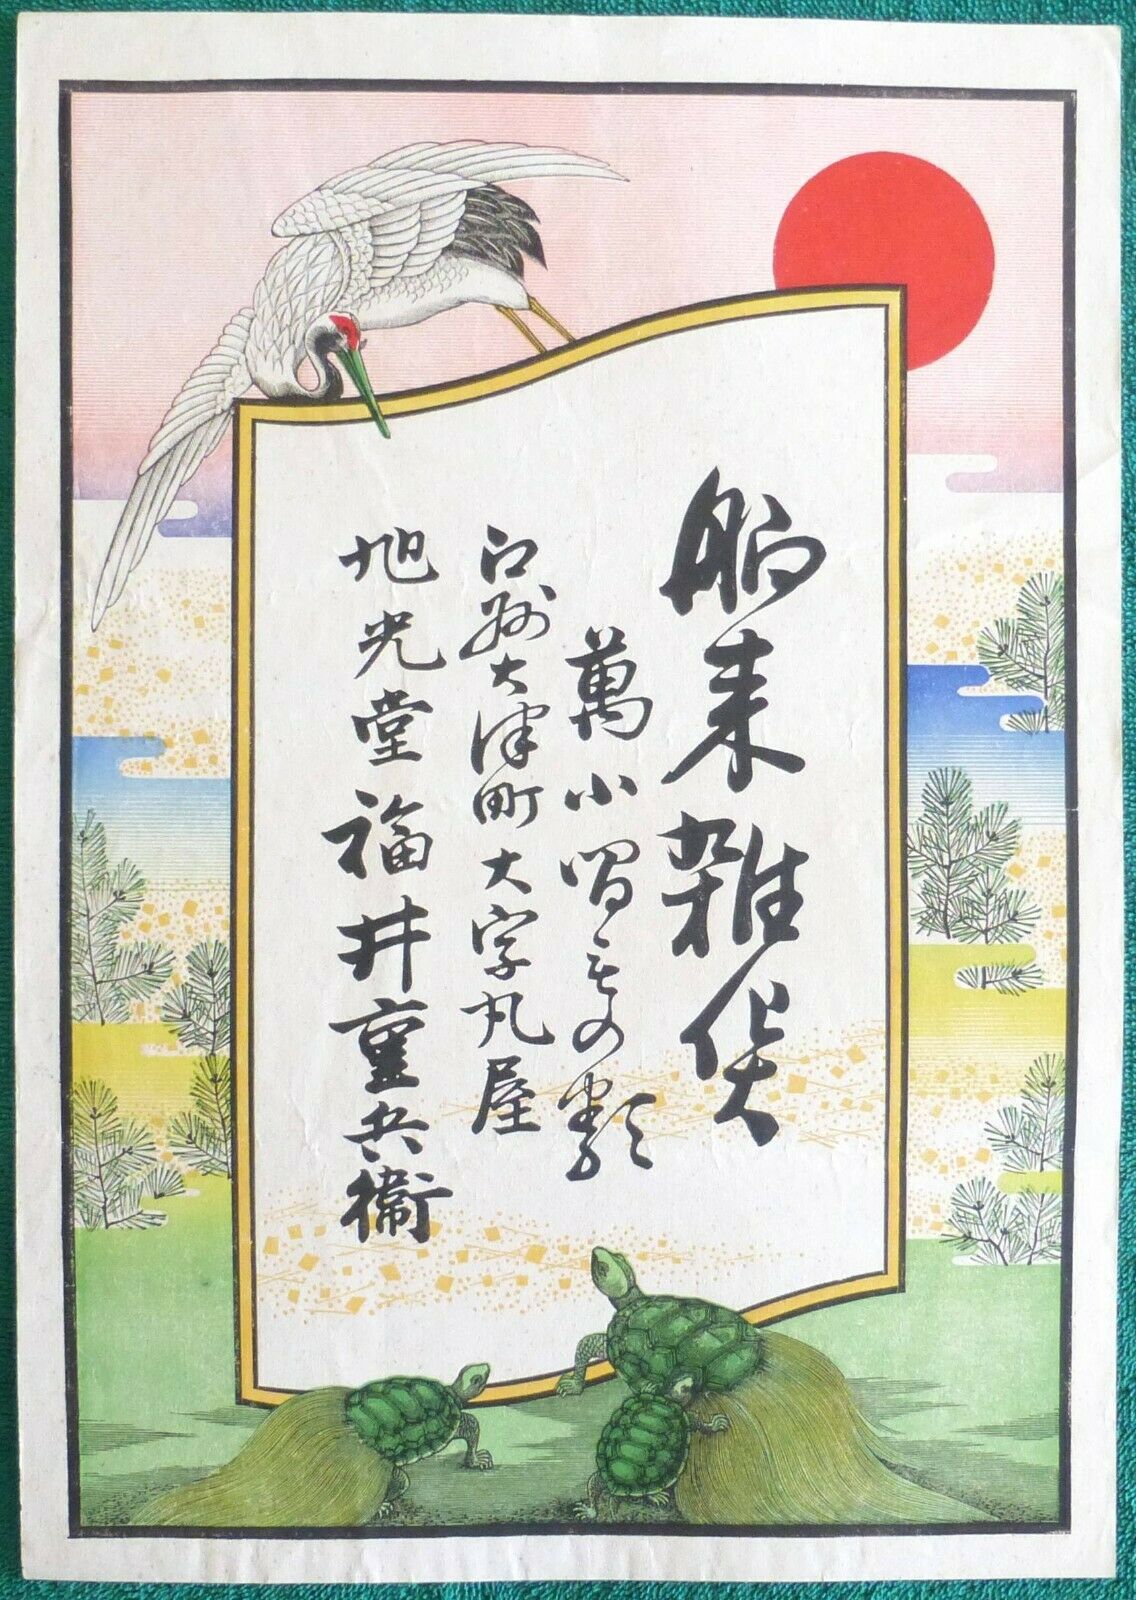 舶来雑貨
萬小間もの類
江州大津町大字丸屋
旭光堂福井重兵衛